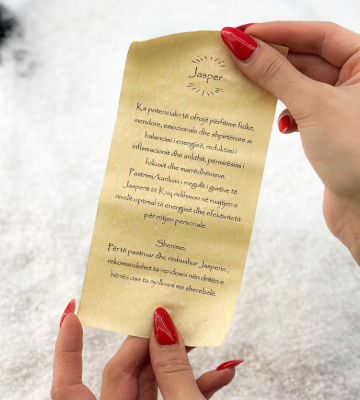 Jasper
Ka potencialin të ofrojë përfitime fizike,
mendore, emocionale dhe shpirtërore si
balancimi i energjisë, reduktimi i
inflamacionit dhe ankthit, përmirësimi i
fokusit dhe marrëdhënieve.
Pastrimi/karikimi i rregullt i gurëve të
Jasperit të Kuq ndihmon në ruajtjen e
nivelit optimal të energjisë dhe efektivitetit
për rritjen personale.
Shënime:
Për të pastruar dhe rimbushur Jasperin,
rekomandohet ta vendosni nën dritën e
hënës ose ta tymosni me sherebelë.